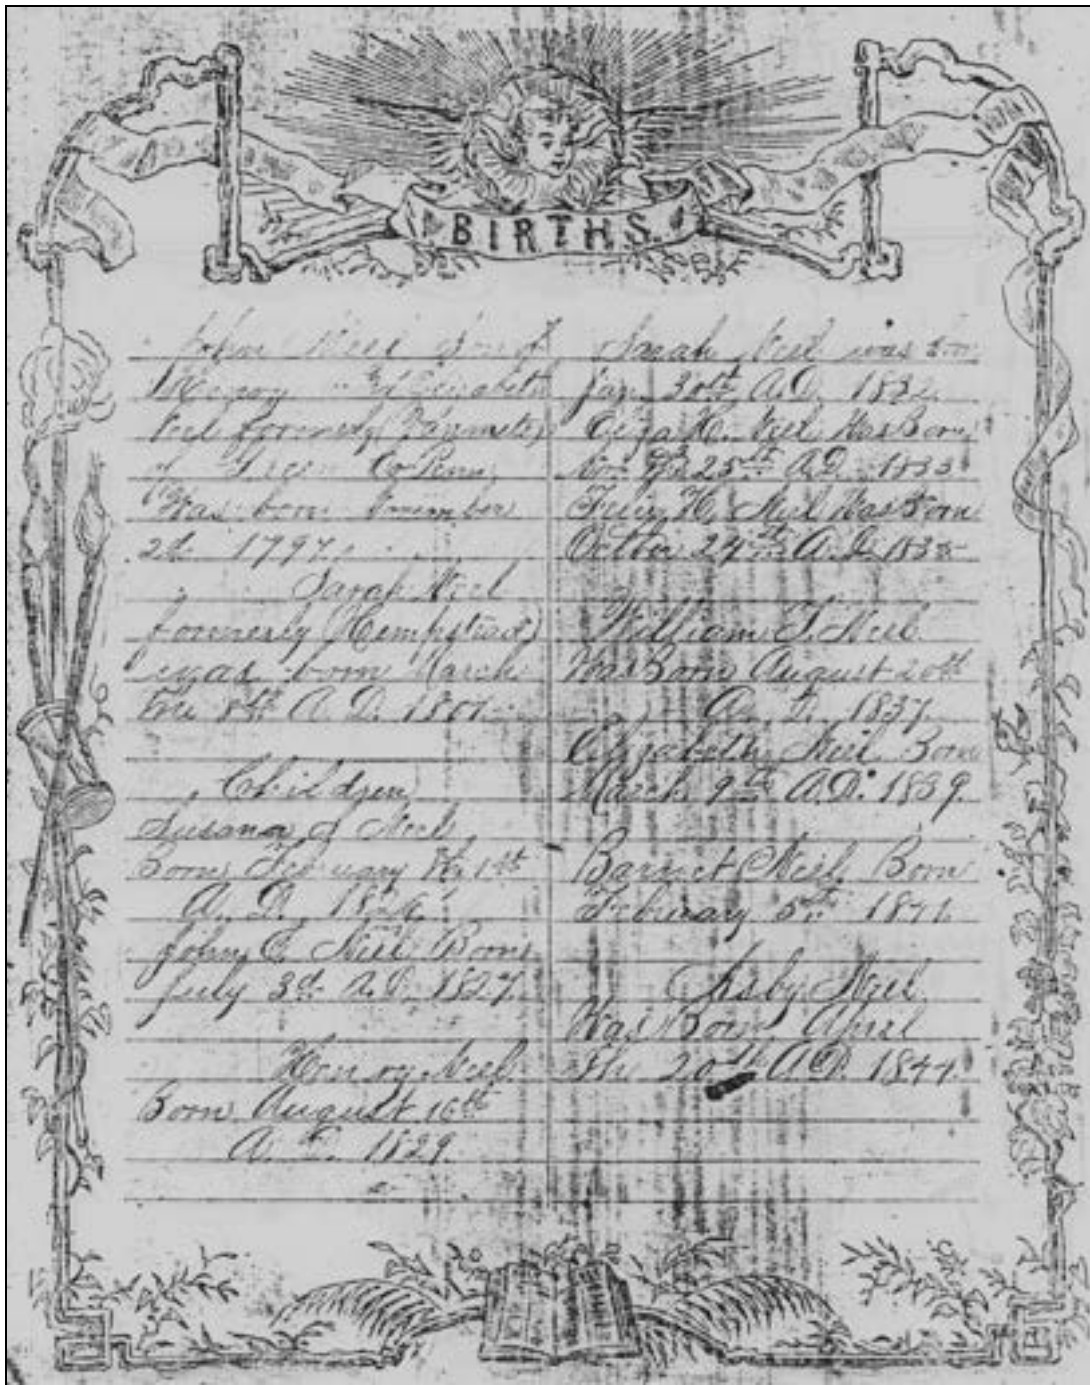 BIRTHS.
John Neel Son of
and Elizabeth
Neel formerly
of Co Penn
Was born
2d. 1797.
Sarah Neel
formerly (Hempstead)
was born March
the 8th A. D. 1801
Children
Neel
Born February the 1st
A. D.
John C. Neel Born
July 3d. A. D. 1827.
Henry Neel
Born August 16th
A. D. 1829.
Sarah Neel was born
Jan. 30th A. D. 1832.
Eliza H. Neel Was Born
25th A. D. 1833
H. Neel Was Born
October 24th A. D. 1835
William T. Neel
Was Born August 20th
A. D. 1837.
Elizabeth Neel Born
March 9th A. D. 1839.
Barnet Neel Born
February 5th 1841.
Neel
Was Born April
The 20th A. D. 1844.